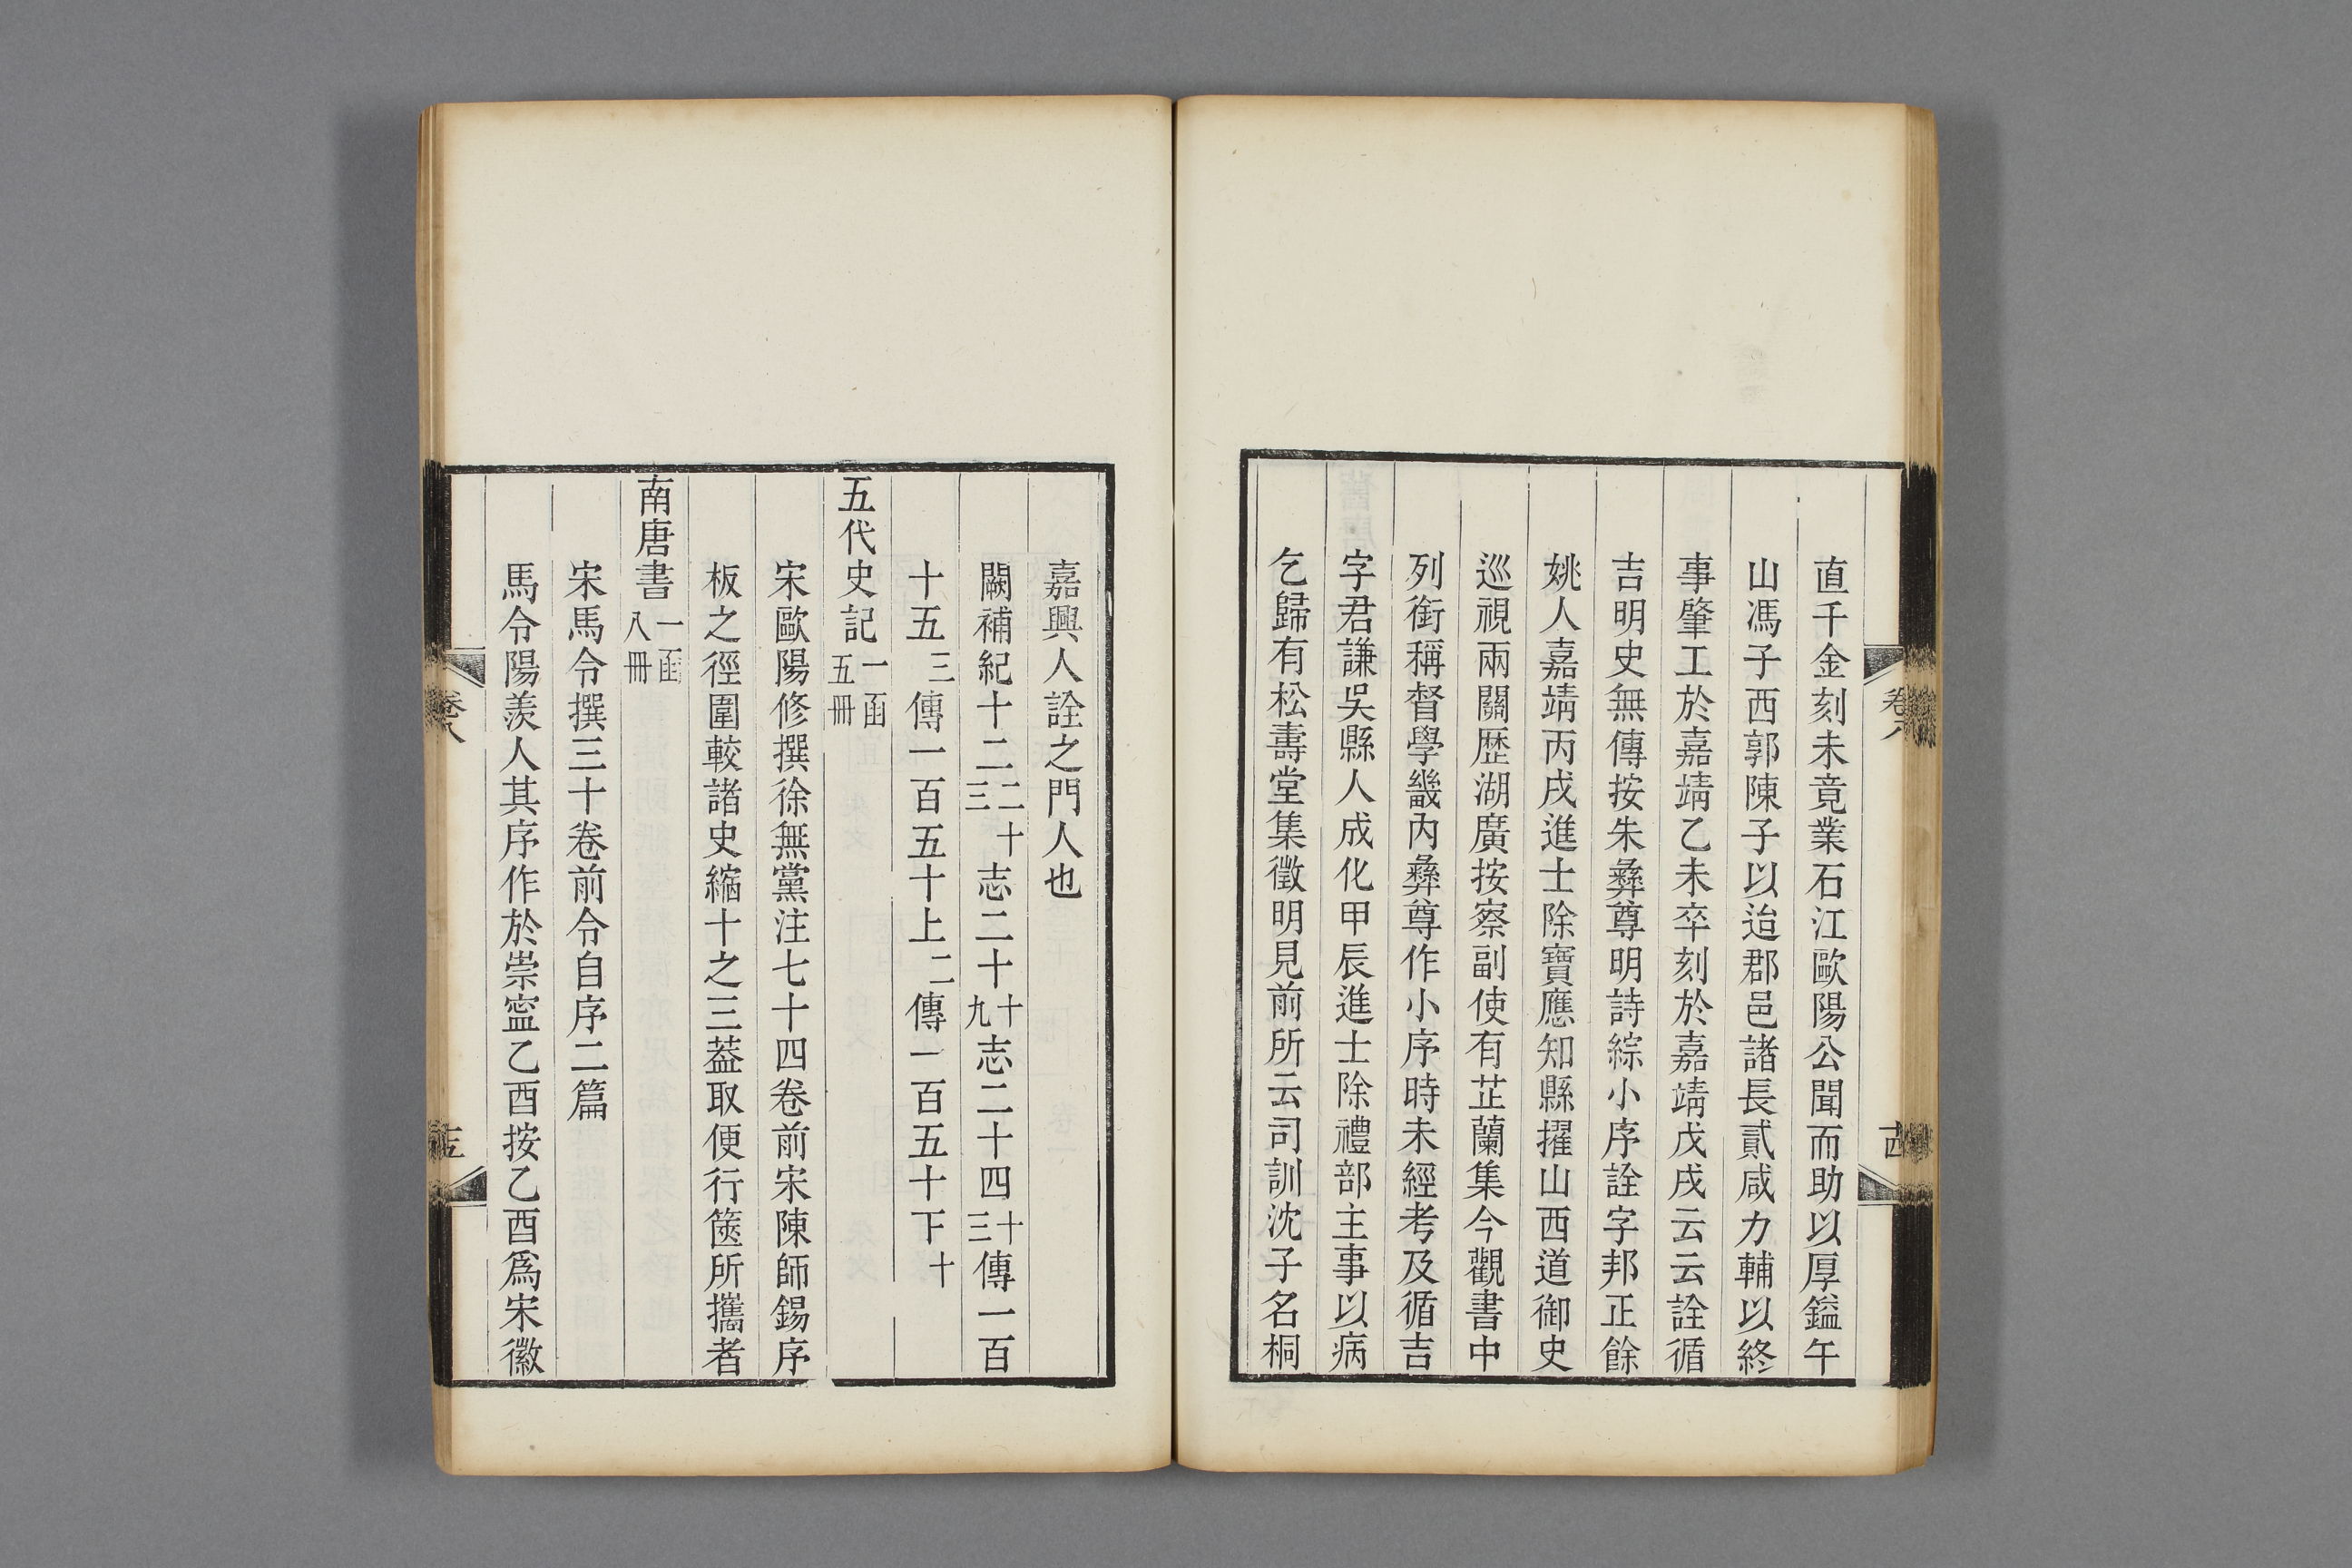 直千金刻未竟業石江歐陽公聞而助以厚鎰午
山馮子西郭陳子以迨郡邑諸長貳咸力輔以終
事肇工於嘉靖乙未卒刻於嘉靖戊戌云云詮循
吉明史無傳按朱彝尊明詩綜小序詮字邦正餘
姚人嘉靖丙戌進士除寶應知縣擢山西道御史
巡視兩關歷湖廣按察副使有芷蘭集今觀書中
列銜稱督學畿內彝尊作小序時未經考及循吉
字君謙吳縣人成化甲辰進士除禮部主事以病
乞歸有松壽堂集徵明見前所云司訓沈子名桐
卷八
十四
嘉興人詮之門人也
闕補紀十二二十三志二十十九志二十四十三傳一百
十五三傳一百五十上二傳一百五十下十
五代史記一函五冊
宋歐陽修撰徐無黨注七十四卷前宋陳師錫序
板之徑圍較諸史縮十之三葢取便行篋所攜者
南唐書一函八冊
宋馬令撰三十卷前令自序二篇
馬令陽羨人其序作於崇寍乙酉按乙酉爲宋徽
卷八
十五